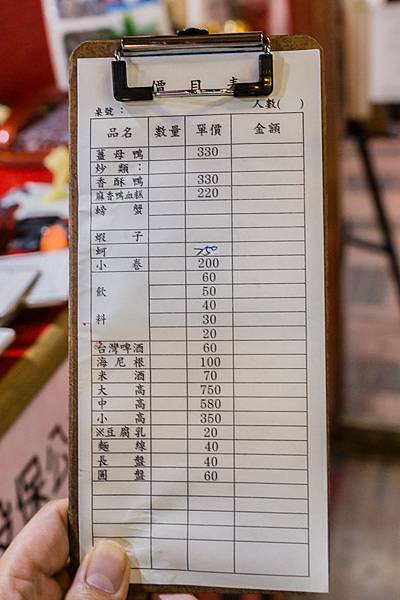 價目表
桌號： 人數( )
品名 數量 單價 金額
薑母鴨 330
炒類：
香酥鴨 330
麻香鴨血糕 220
螃蟹
蝦子
蚵 150
小卷 200
60
飲 50
40
料 30
20
台灣啤酒 60
海尼根 100
米酒 70
大高 750
中高 580
小高 350
※豆腐乳 20
麵線 40
長盤 40
圓盤 60
保公